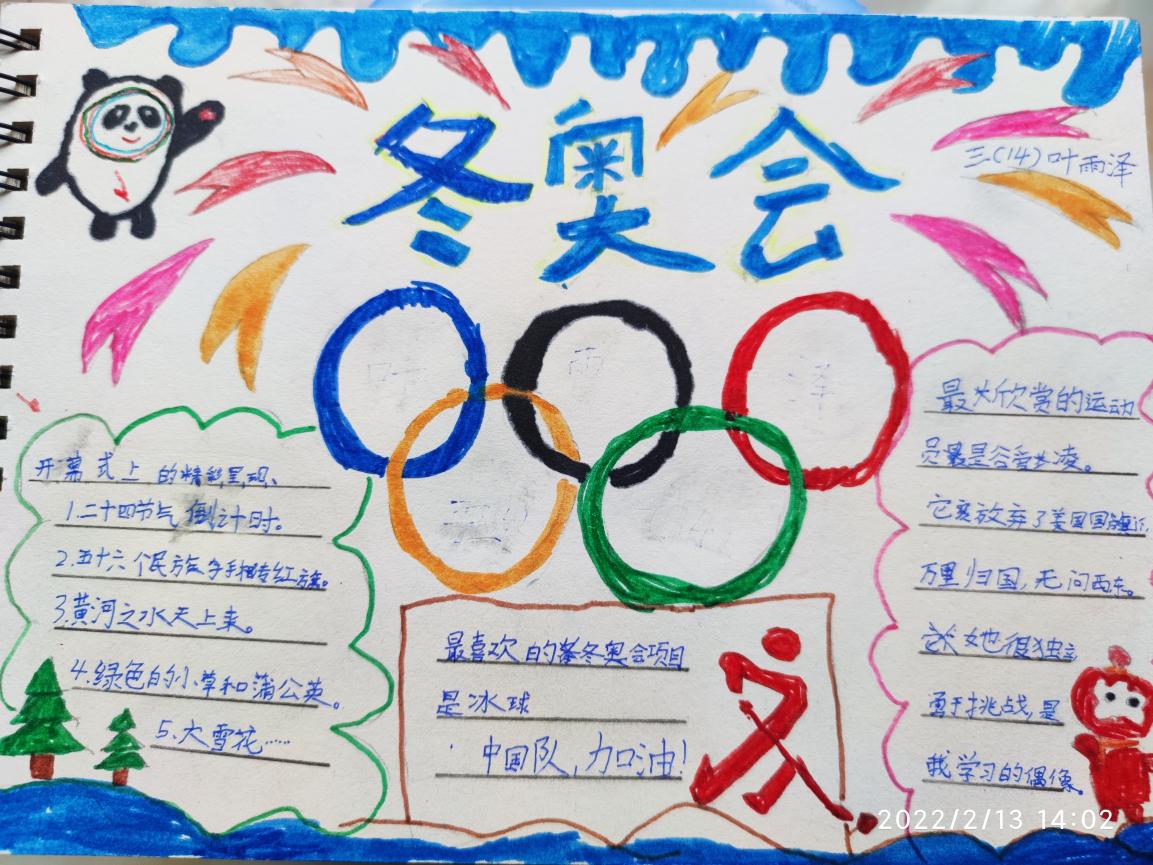 冬奥会
三(14)叶雨泽
叶 雨 泽
开幕式上的精彩呈现、
1.二十四节气倒计时。
2.五十六个民族手相传红旗。
3.黄河之水天上来。
4.绿色的小草和蒲公英。
5.大雪花……
最喜欢的冬奥会项目
是冰球
中国队,加油!
最大欣赏的运动
员是谷爱凌。
放弃了美国国籍
万里归国,无问西东。
她很独立
勇于挑战,是
我学习的偶像。
2022/2/13 14:02